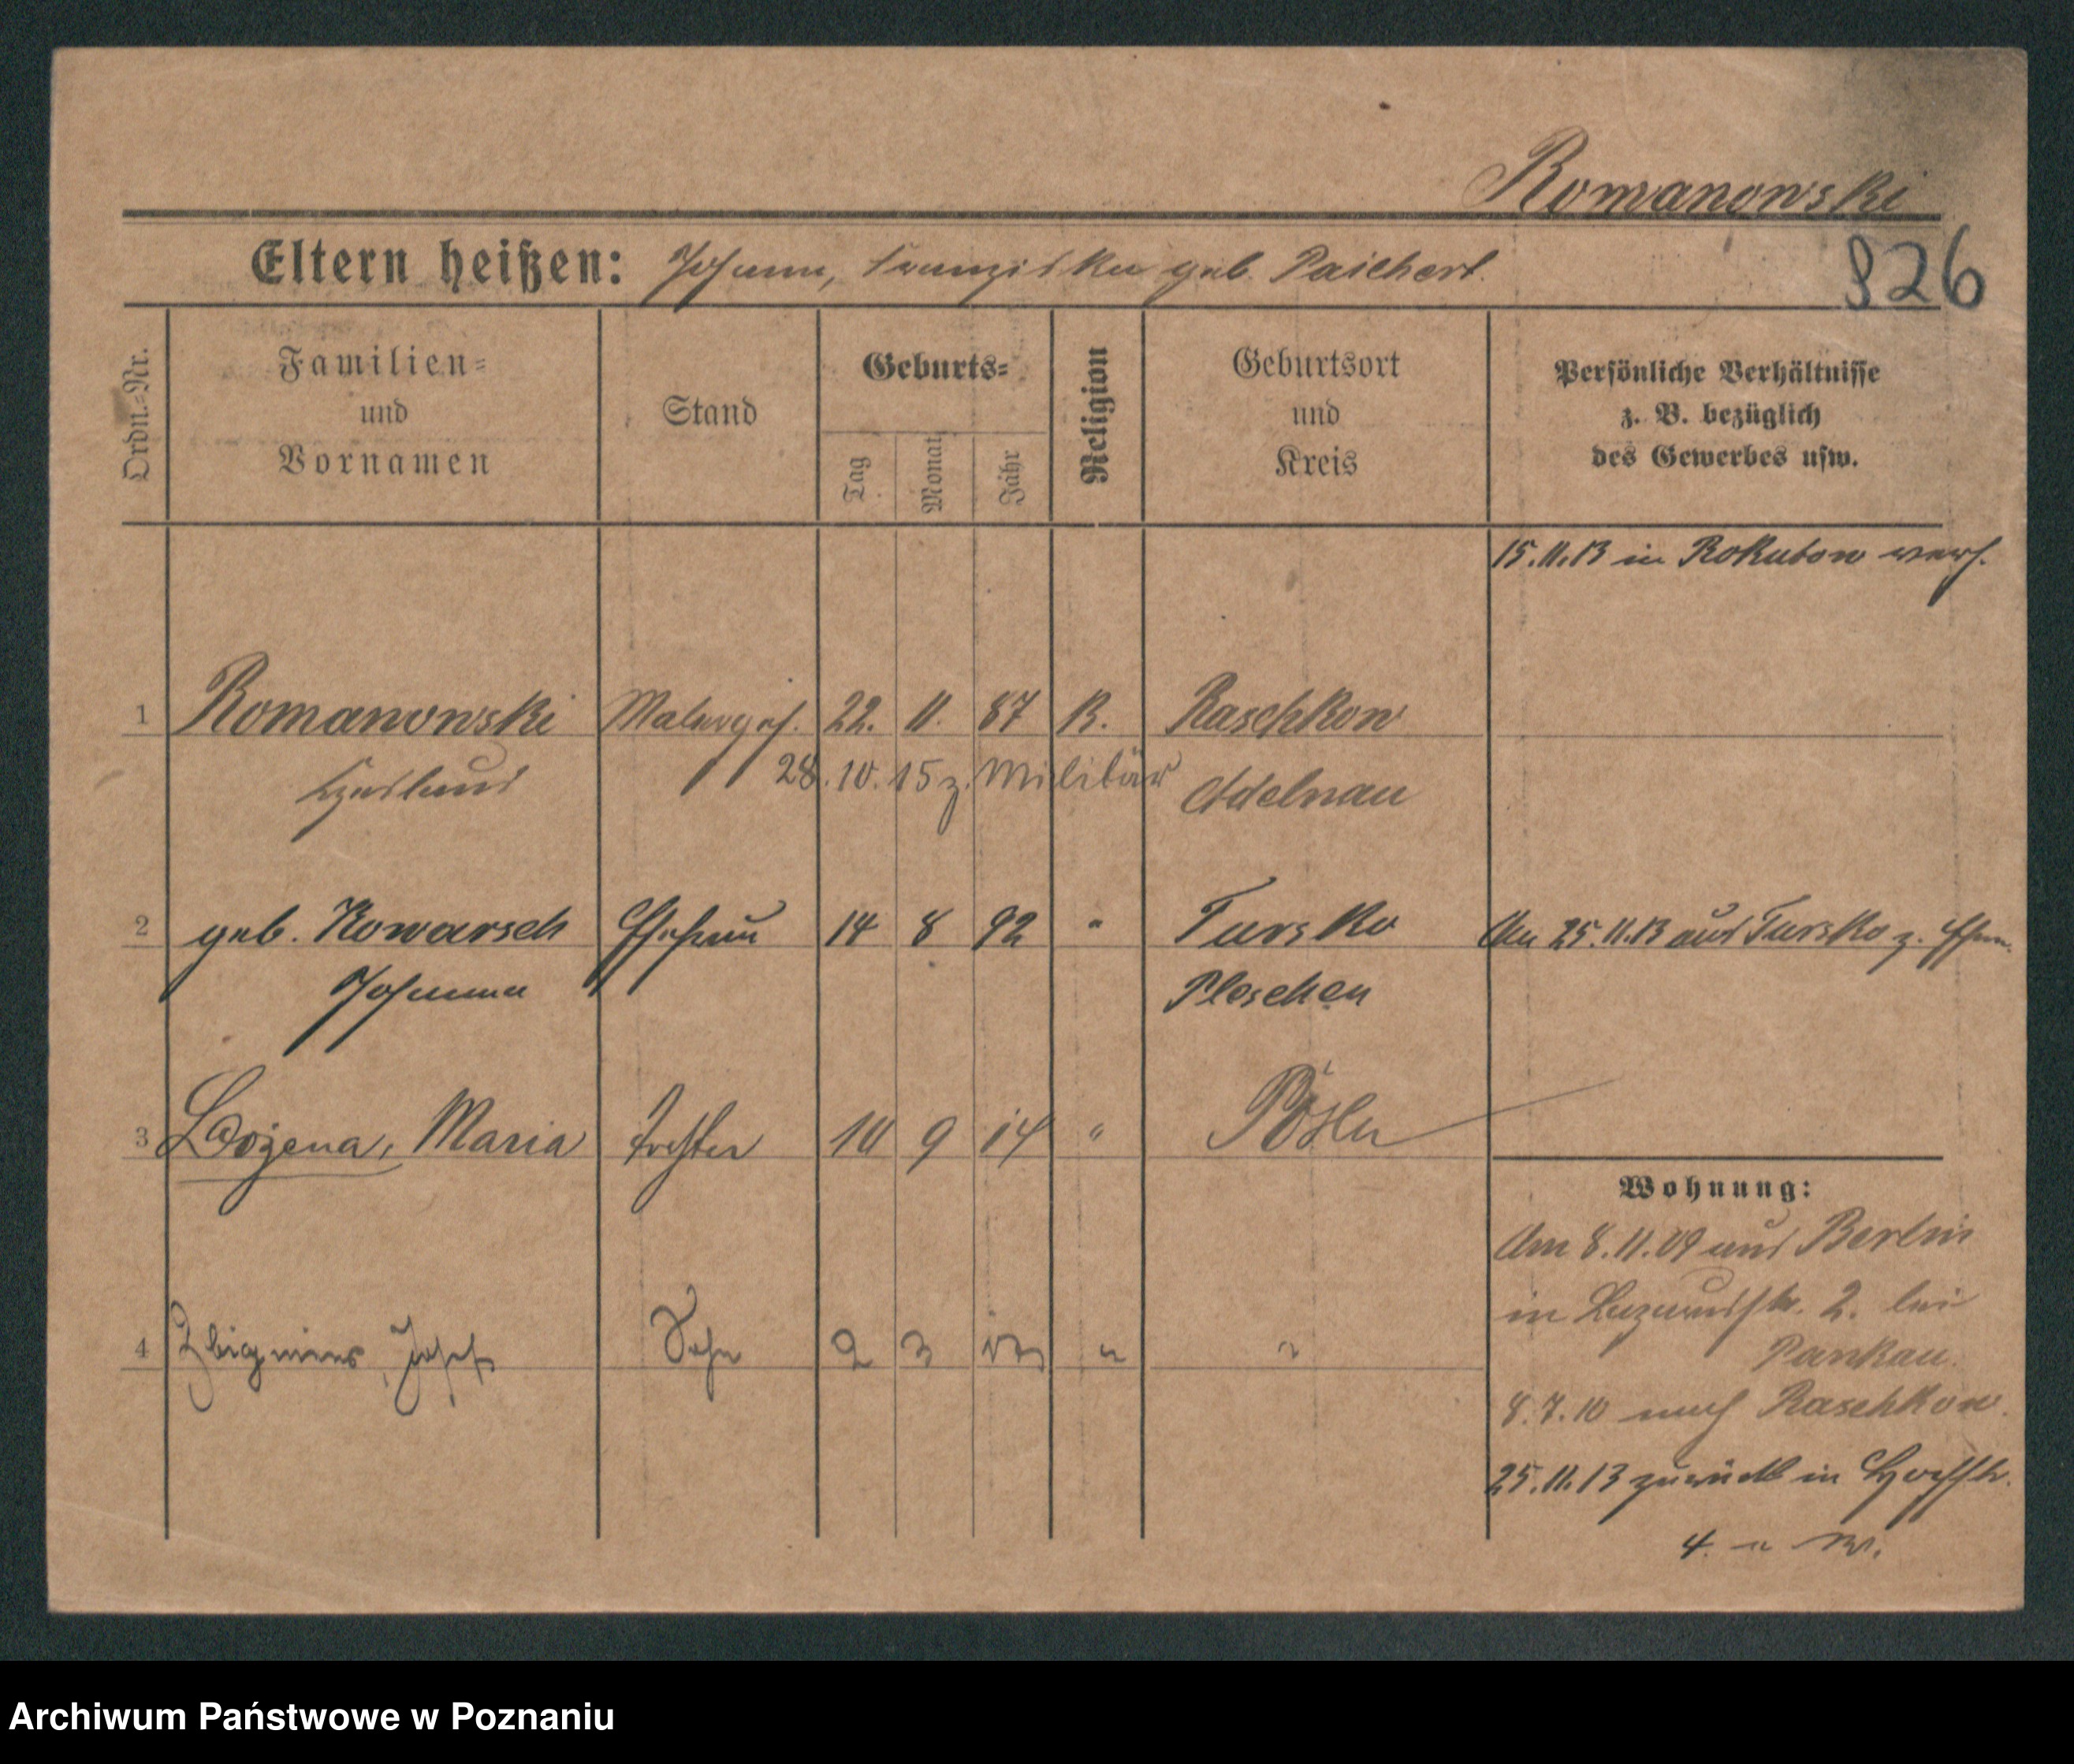 Romanowski
Eltern heißen: Johann, Franziska geb. Paichert.
926
Ordn.-Nr.
Familien-
und
Vornamen
Stand
Geburts-
Tag
Monat
Jahr
Religion
Geburtsort
und
Kreis
Persönliche Verhältnisse
z. B. bezüglich
des Gewerbes usw.
15.11.13 in Rokutow verh.
1 Romanowski Malergeh. 22. 11. 87 R. Raschkow
28.10.15 z. Militär
Adelnau
2 geb. Kowarsch Ehefrau 14 8 92 " Tursko Am 25.11.13 aus Tursko z. Ehem.
Johanna Pleschen
3 Bożena, Maria Tochter 10 9 14 " Posen
Wohnung:
Am 8.11.09 aus Berlin
in 2. bei
Pankau.
4 Josef Sohn 2 3 " "
8.7.10 nach Raschkow.
25.11.13 zurück in
4.